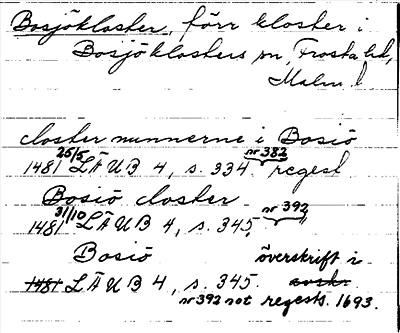 Bosjökloster, förr kloster i
Bosjöklosters sn, Frosta hd,
Malm. l
closter nunnerne i Bosiö
1481 25/5 LÄUB 4, s. 334 nr 382 regest
Bosiö closter
1481 31/10 LÄUB 4, s. 345, nr 392 "
Bosiö överskrift i
1481 LÄUB 4, s. 345. avskr.
nr 392 not regests. 1693.